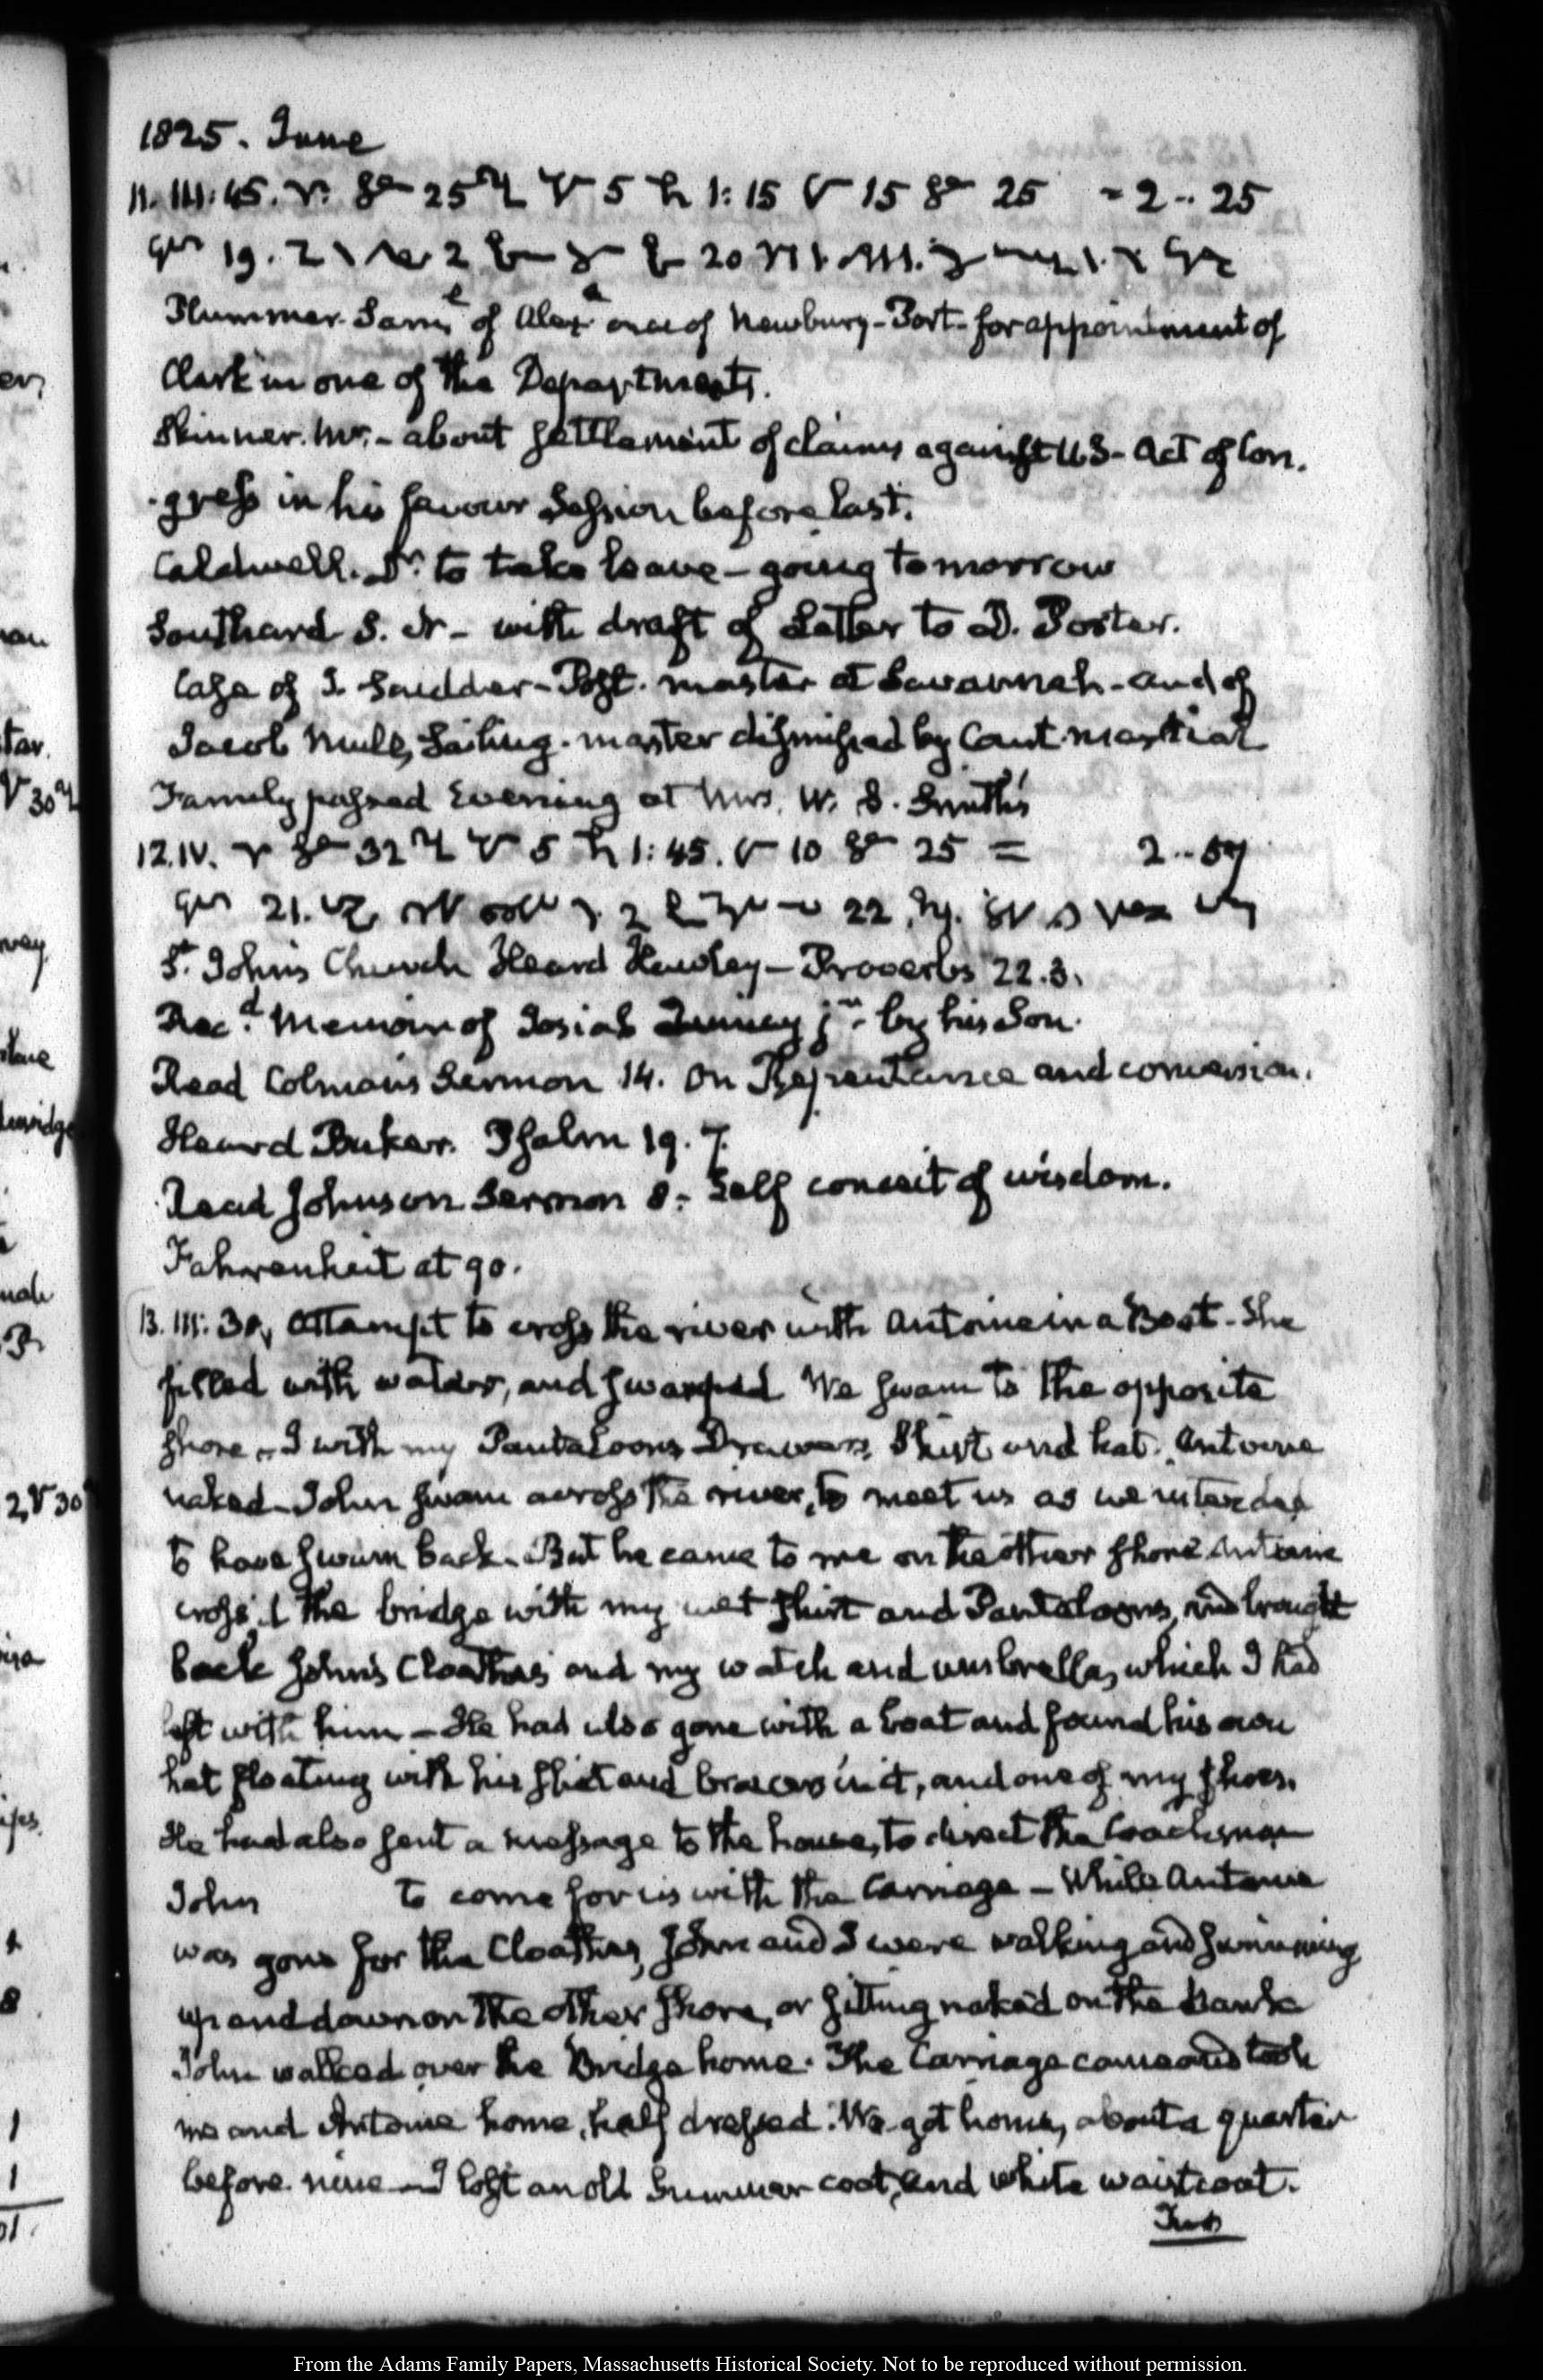 1825. June
11. III: 45. 25 5 1: 15 15 25 2.. 25
19. 2 20
Plummer. Saml. of Alexa once of Newbury-Port- for appointment of
Clerk in one of the Departments.
Skinner. Mr.- about settlement of claims against U S- Act of Con.
gress in his favour Session before last.
Caldwell. Dr. to take leave - going tomorrow
Southard S. Jr - with draft of Letter to D. Porter.
Case of I. Scudder - Post. master at Savannah - and of
Jacob Mull, Sailing. master dismissed by Court martial
Family passed Evening at Mrs. W. S. Smith's
12. IV. 32 5 1: 45. 10 25 = 2.. 57
21. 2 22
St. John's Church Heard Hawley - Proverbs 22.3.
Recd. Memoir of Josiah Quincy jr. by his Son.
Read Colman's Sermon 14. On Repentance and conversion.
Heard Baker. Psalm 19. 7.
Read Johnson Sermon 8. Self conceit of wisdom.
Fahrenheit at 90.
13. III: 30, Attempt to cross the river with Antoine in a Boat - She
filled with water, and swamped We swam to the opposite
shore - I with my Pantaloons Drawers, Shirt and hat. Antoine
naked - John swam across the river, to meet us as we intended
to have swum back. But he came to me on the other shore Antoine
cross'd the bridge with my wet shirt and Pantaloons, and brought
back John's Cloathes and my watch and umbrella, which I had
left with him - He had also gone with a boat and found his own
hat floating with his shirt and braces in it, and one of my shoes.
He had also sent a message to the house, to direct the Coachman
John to come for us with the Carriage - While Antoine
was gone for the Cloathes, John and I were walking and swimming
up and down on the other shore, or sitting naked on the bank
John walked over the Bridge home. The Carriage came and took
me and Antoine home, half dressed. We got home, about a quarter
before nine - I lost an old Summer coat, and white waistcoat.
Two
From the Adams Family Papers, Massachusetts Historical Society. Not to be reproduced without permission.